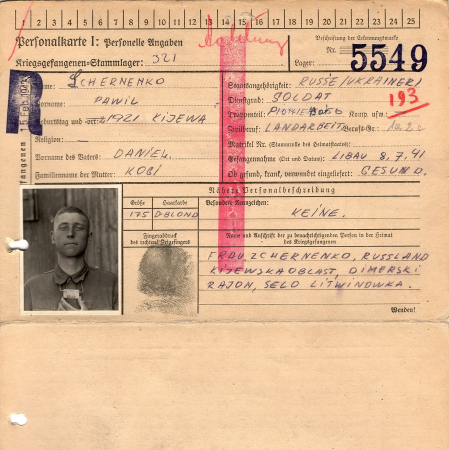 1 2 3 4 5 6 7 8 9 10 11 12 13 14 15 16 17 18 19 20 21 22 23 24 25
Personalkarte I: Personelle Angaben
Kriegsgefangenen-Stammlager: 321
Beschriftung der Erkennungsmarke
Nr. 5549
Lager:
Name: ZCHERNENKO
Vorname: PAWIL
Geburtstag und -ort: 1921 KIJEWA
Religion:
Vorname des Vaters: DANIEL.
Familienname der Mutter: KOBI
Staatsangehörigkeit: RUSSE (UKRAINER)
Dienstgrad: SOLDAT
Truppenteil: Komp. usw.:
193
Zivilberuf: LANDARBEIT Berufs-Gr.:
Matrikel Nr. (Stammrolle des Heimatstaates):
Gefangennahme (Ort und Datum): LIBAU 8.7.41
Ob gesund, krank, verwundet eingeliefert: GESUND.
R
Nähere Personalbeschreibung
Größe Haarfarbe Besondere Kennzeichen:
175 D-BLOND KEINE.
Fingerabdruck
des rechten Zeigefingers
Name und Anschrift der zu benachrichtigenden Person in der Heimat
des Kriegsgefangenen
FRAU, ZCHERNENKO, RUSSLAND
KIJEWSKA OBLAST, DIMERSKI
RAJON, SELO LITWINOWKA.
Wenden!